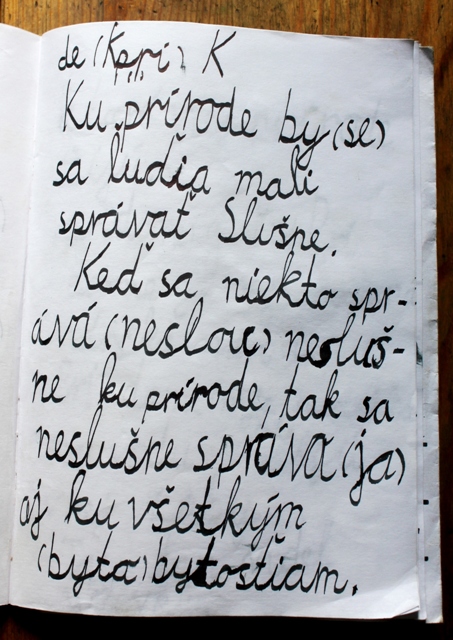 de (Kpri) K
Ku prírode by (se)
sa ľudia mali
správať Slušne.
Keď sa niekto spr-
ává (neslou) nesluš-
ne ku prírode, tak sa
neslušne správa (ja)
aj ku všetkým
(byta) bytostiam.